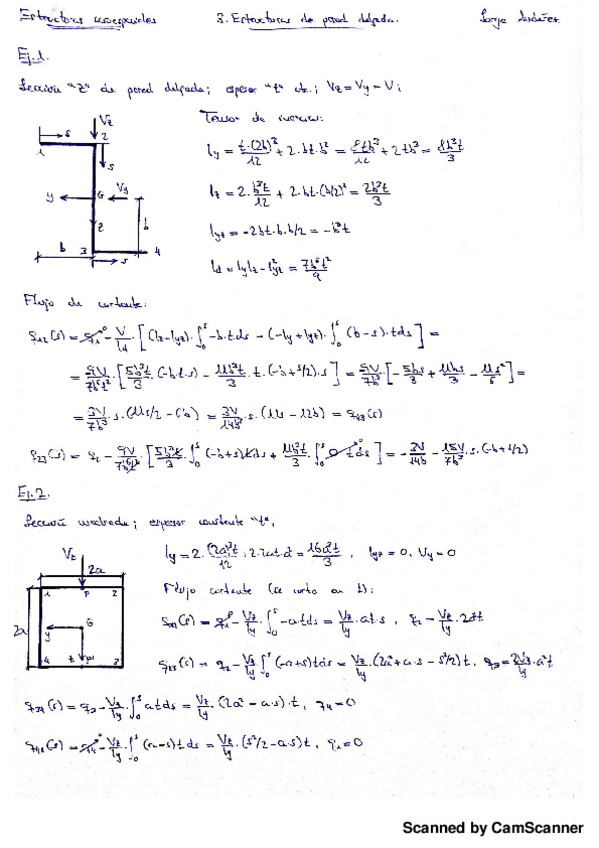 Estructuras aeroespaciales 3. Estructuras de pared delgada. Jorge
Ej.1.
Sección "Z" de pared delgada; espesor "t" cte.; Vz = Vy = V;
Tensor de inercia:
Iy = t·(2b)³/12 + 2·bt·b² = 8tb³/12 + 2tb³ = 8b³t/3
Iz = 2·b³t/12 + 2·bt·(b/2)² = 2b³t/3
Iyz = -2bt·b·b/2 = -b³t
Id = IyIz - Iyz² = 7b⁶t²/9
Vz
s
1
2
s
y
G
Vy
z
b
b
3
4
s
Flujo de cortante:
q12(s) = q1 - V/Id · [(Iz - Iyz)·∫₀ˢ -b·tds - (-Iy + Iyz)·∫₀ˢ (b-s)·tds] =
= 9V/7b⁶t² · [5b³t/3 · (-b·t·s) - 11b³t/3 · t·(-b + s/2)·s] = 9V/7b³ · [-5bs/3 + 11bs/3 - 11s²/6] =
= 3V/7b³ · s·(11s/2 - 6b) = 3V/14b³ · s·(11s - 12b) = q43(s)
q23(s) = q2 - 9V/7b⁶t² · [5b³t/3 ∫₀ˢ (-b+s)tds + 11b³t/3 · ∫₀ˢ 0 tds] = -3V/14b - 15V/7b³ · s·(-b + s/2)
Ej.2.
Sección cuadrada; espesor constante "t",
Iy = 2·(2a)³t/12 + 2·2at·a² = 16a³t/3, Iyz = 0, Vy = 0
Vz
2a
1
P
2
2a
y
G
4
z
3
Flujo cortante (se corta en 1):
q12(s) = q1 - Vz/Iy · ∫₀ˢ -atds = Vz/Iy · at·s, q2 = Vz/Iy · 2a²t
q23(s) = q2 - Vz/Iy · ∫₀ˢ (-a+s)tds = Vz/Iy · (2a² + a·s - s²/2)t, q3 = 2Vz/Iy · a²t
q34(s) = q3 - Vz/Iy · ∫₀ˢ atds = Vz/Iy · (2a² - a·s)·t, q4 = 0
q41(s) = q4 - Vz/Iy · ∫₀ˢ (a-s)tds = Vz/Iy · (s²/2 - a·s)t, q1 = 0
Scanned by CamScanner